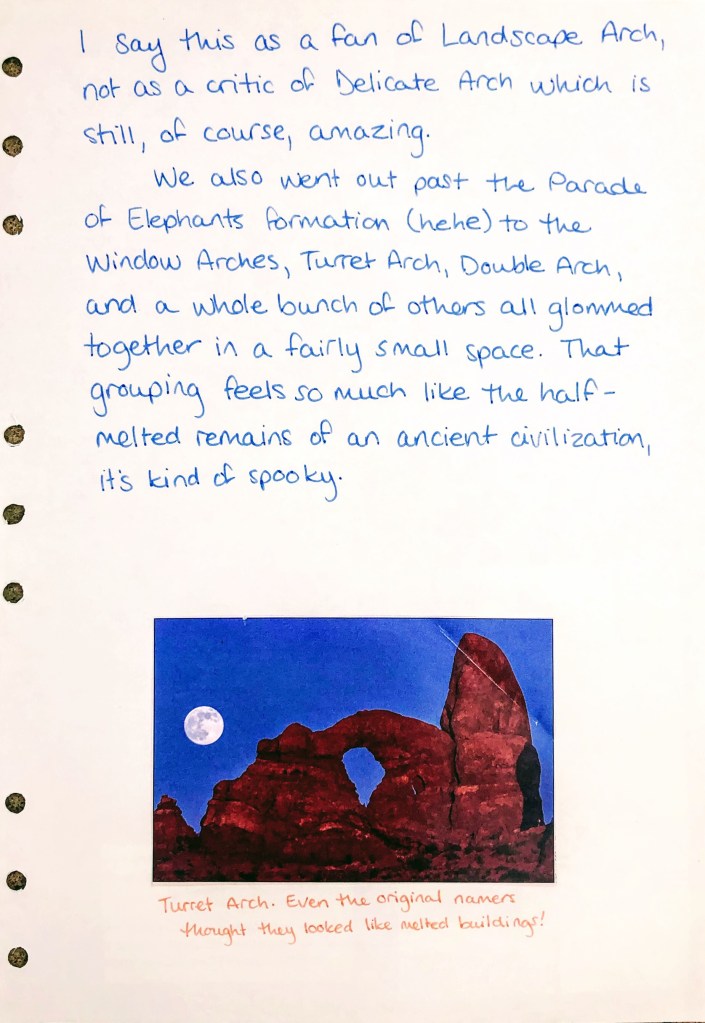 I say this as a fan of Landscape Arch,
not as a critic of Delicate Arch which is
still, of course, amazing.
We also went out past the Parade
of Elephants formation (hehe) to the
Window Arches, Turret Arch, Double Arch,
and a whole bunch of others all glommed
together in a fairly small space. That
grouping feels so much like the half-
melted remains of an ancient civilization,
it's kind of spooky.
Turret Arch. Even the original namers
thought they looked like melted buildings!